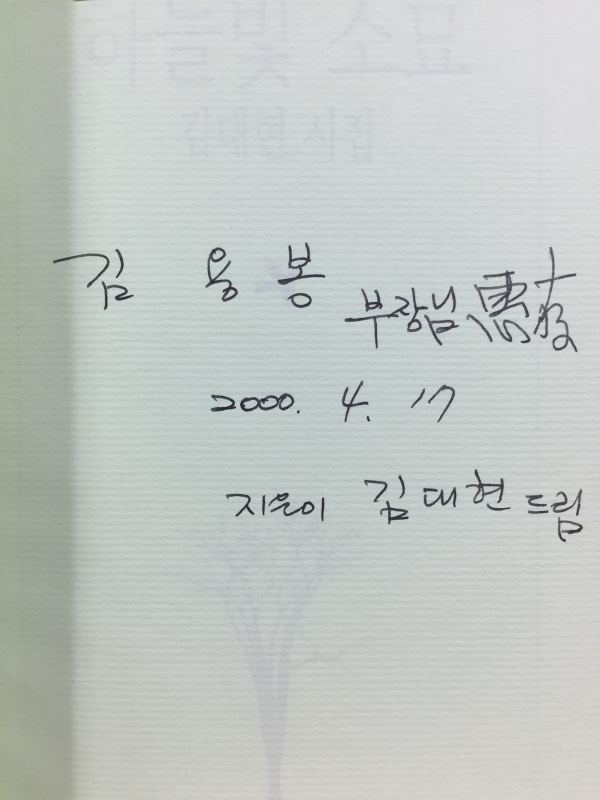 하늘빛 소묘
김대현 시집
김 용 봉
부장님 惠存
2000. 4. 17
지은이 김대현 드림